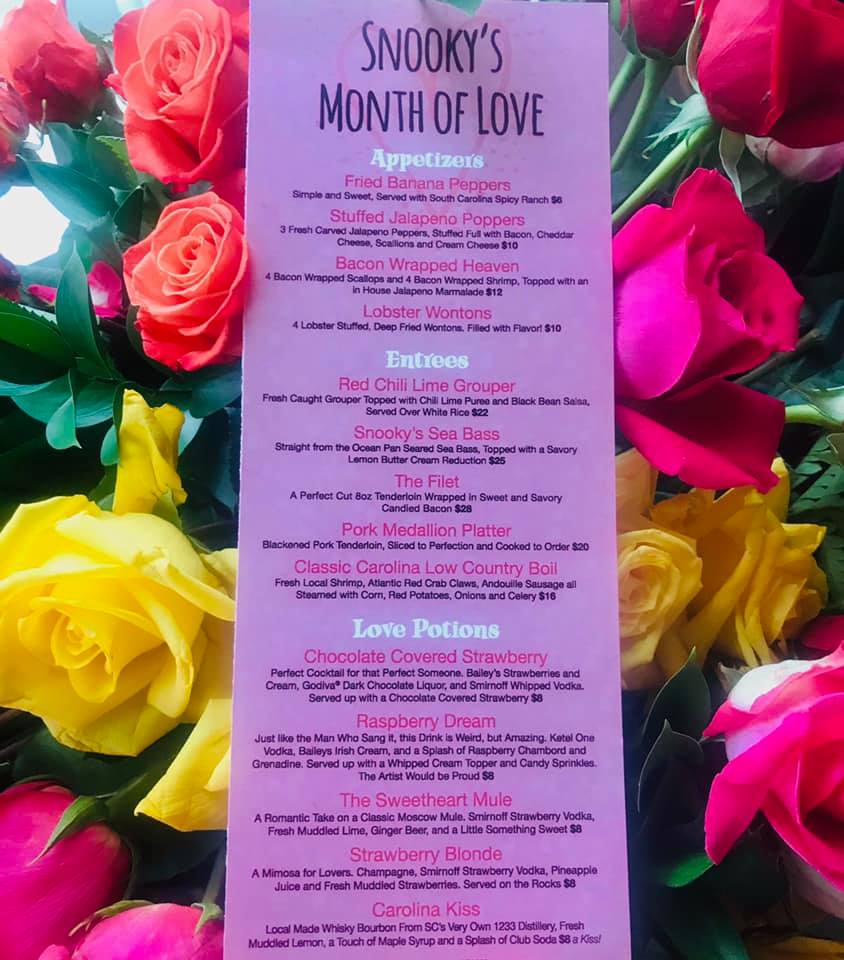 SNOOKY'S
MONTH OF LOVE
Appetizers
Fried Banana Peppers
Simple and Sweet, Served with South Carolina Spicy Ranch $6
Stuffed Jalapeno Poppers
3 Fresh Carved Jalapeno Peppers, Stuffed Full with Bacon, Cheddar
Cheese, Scallions and Cream Cheese $10
Bacon Wrapped Heaven
4 Bacon Wrapped Scallops and 4 Bacon Wrapped Shrimp, Topped with an
in House Jalapeno Marmalade $12
Lobster Wontons
4 Lobster Stuffed, Deep Fried Wontons. Filled with Flavor! $10
Entrees
Red Chili Lime Grouper
Fresh Caught Grouper Topped with Chili Lime Puree and Black Bean Salsa,
Served Over White Rice $22
Snooky's Sea Bass
Straight from the Ocean Pan Seared Sea Bass, Topped with a Savory
Lemon Butter Cream Reduction $25
The Filet
A Perfect Cut 8oz Tenderloin Wrapped in Sweet and Savory
Candied Bacon $28
Pork Medallion Platter
Blackened Pork Tenderloin, Sliced to Perfection and Cooked to Order $20
Classic Carolina Low Country Boil
Fresh Local Shrimp, Atlantic Red Crab Claws, Andouille Sausage all
Steamed with Corn, Red Potatoes, Onions and Celery $16
Love Potions
Chocolate Covered Strawberry
Perfect Cocktail for that Perfect Someone. Bailey's Strawberries and
Cream, Godiva® Dark Chocolate Liquor, and Smirnoff Whipped Vodka.
Served up with a Chocolate Covered Strawberry $8
Raspberry Dream
Just like the Man Who Sang it, this Drink is Weird, but Amazing. Ketel One
Vodka, Baileys Irish Cream, and a Splash of Raspberry Chambord and
Grenadine. Served up with a Whipped Cream Topper and Candy Sprinkles.
The Artist Would be Proud $8
The Sweetheart Mule
A Romantic Take on a Classic Moscow Mule. Smirnoff Strawberry Vodka,
Fresh Muddled Lime, Ginger Beer, and a Little Something Sweet $8
Strawberry Blonde
A Mimosa for Lovers. Champagne, Smirnoff Strawberry Vodka, Pineapple
Juice and Fresh Muddled Strawberries. Served on the Rocks $8
Carolina Kiss
Local Made Whisky Bourbon From SC's Very Own 1233 Distillery, Fresh
Muddled Lemon, a Touch of Maple Syrup and a Splash of Club Soda $8 a Kiss!